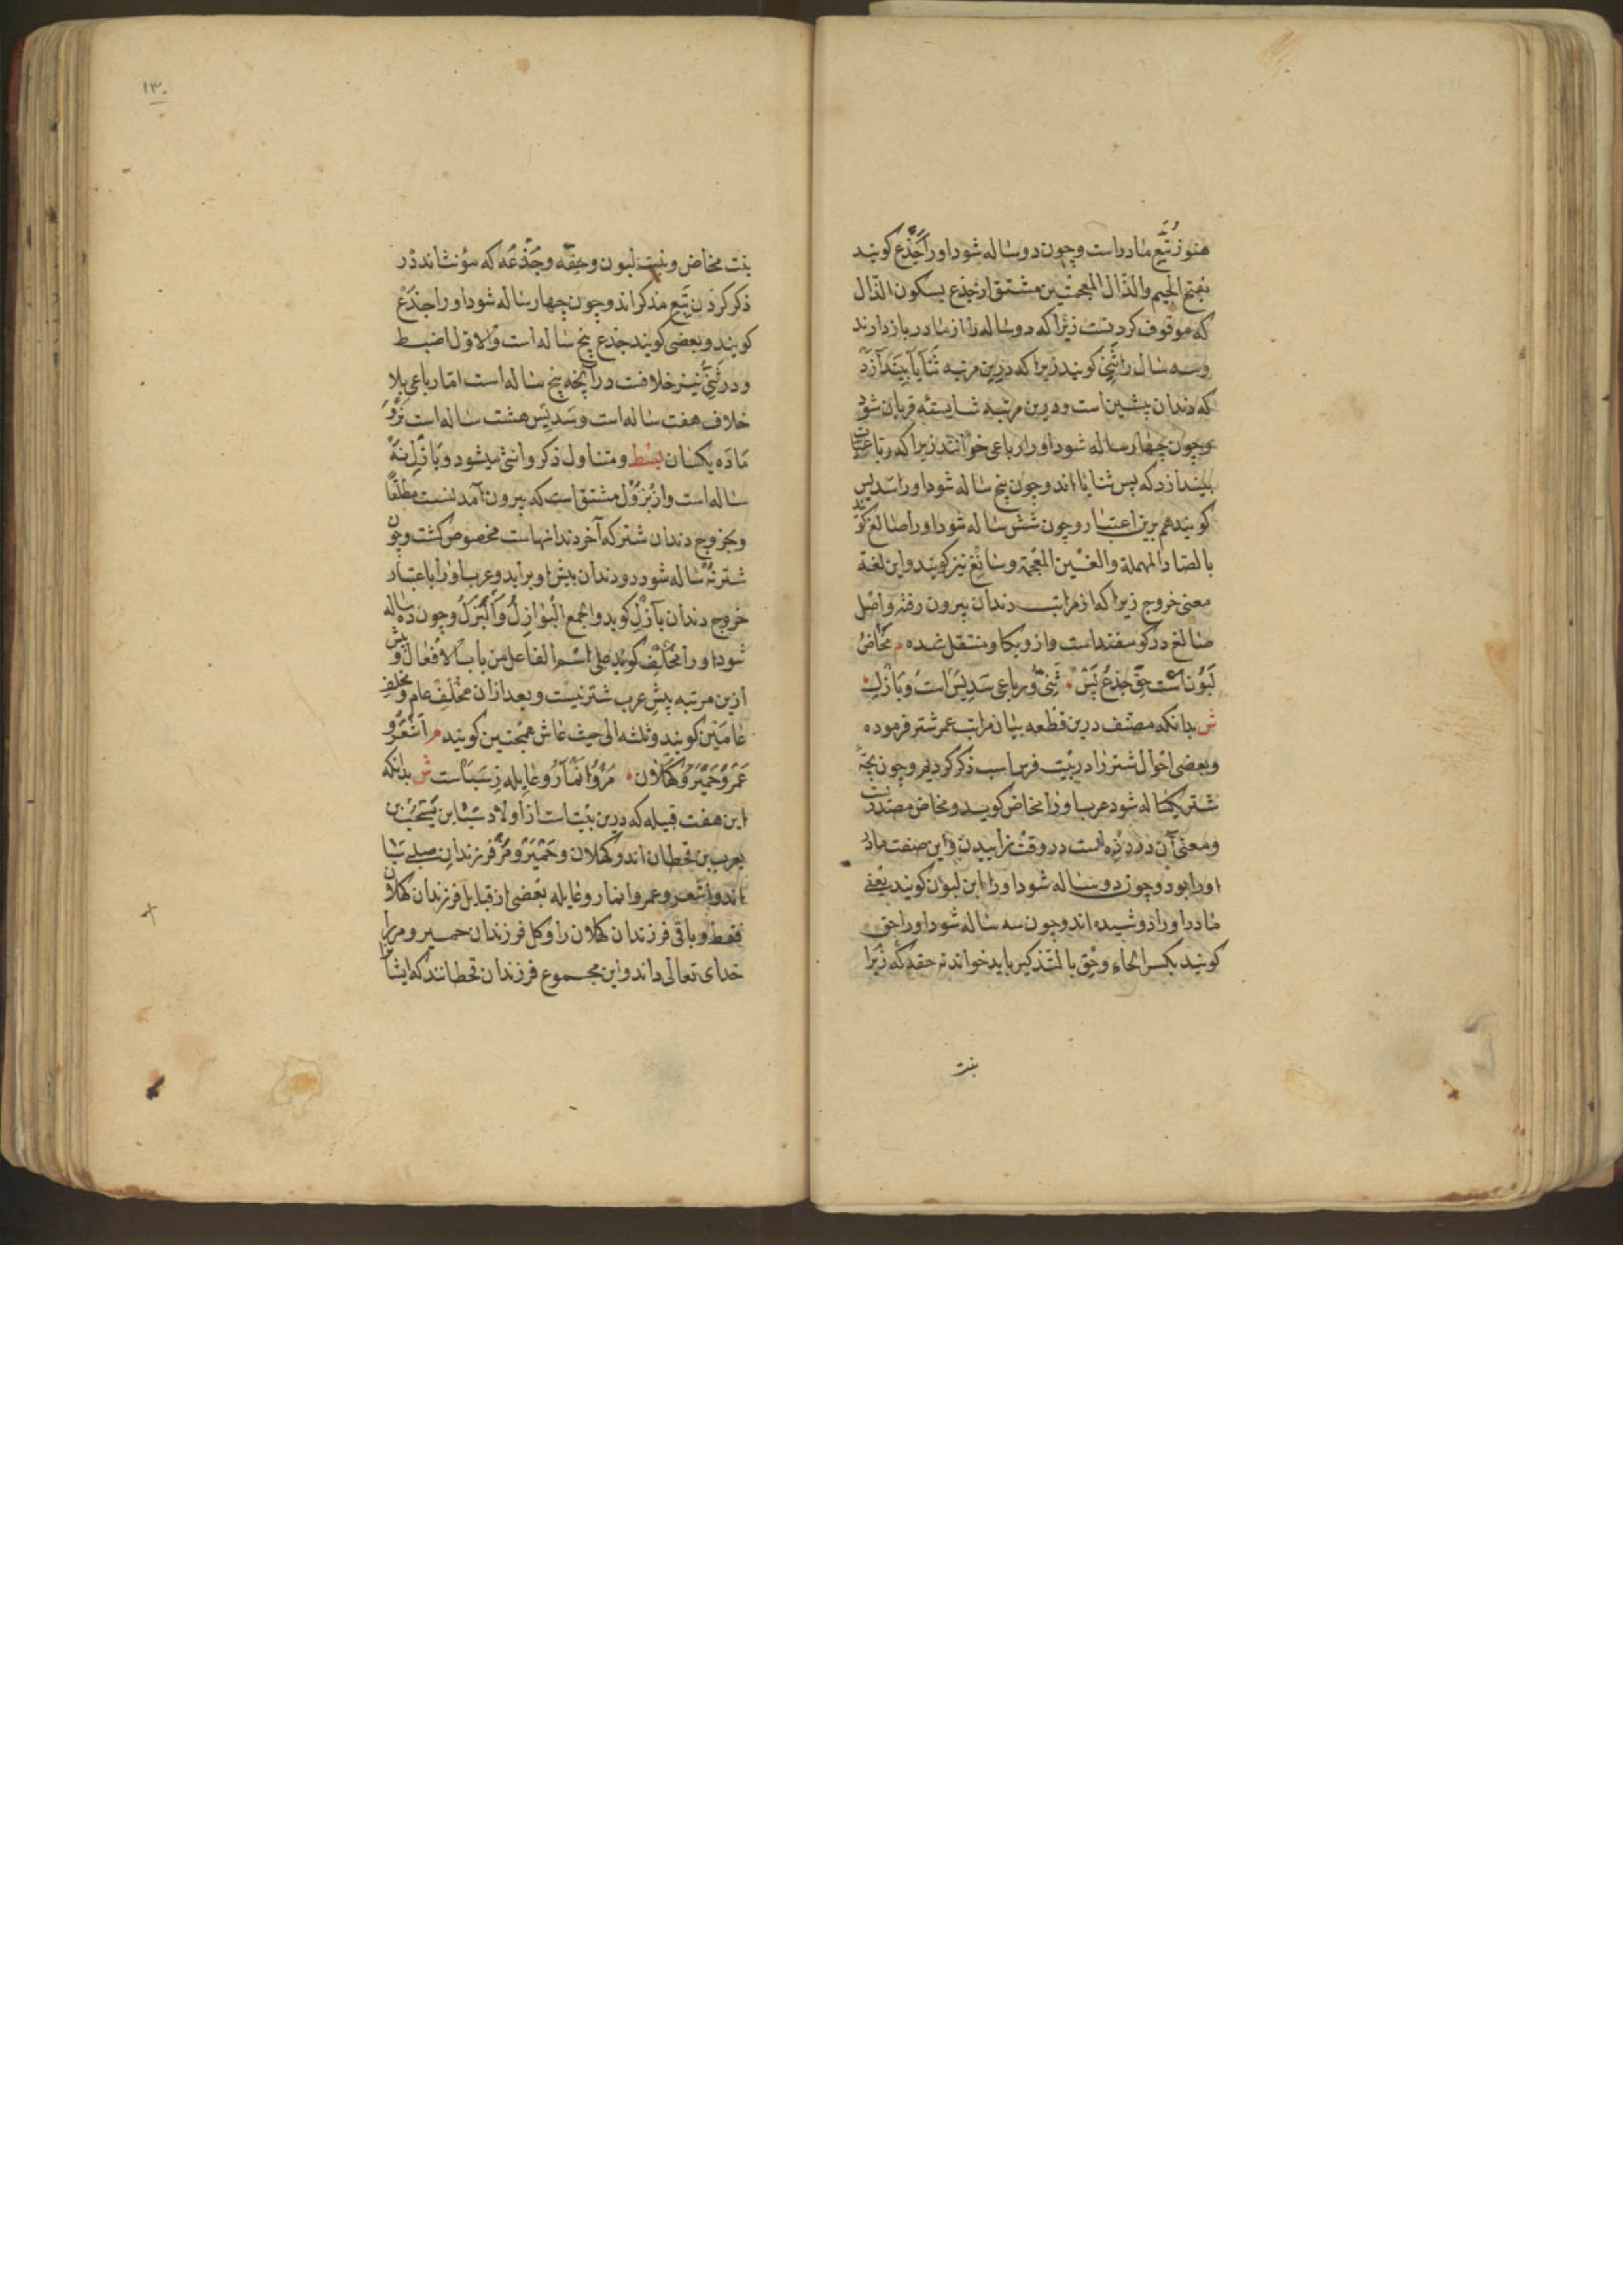 هنوز تبع مادر است وچون دو ساله شود اورا جذع کویند
بفتح الجیم والذال المعجمتین مشتق از جذع بسکون الذال
که موقوف کردنست زیرا که دو ساله را از مادر بازدارند
وسه سال را ثنی کویند زیرا که درین مرتبه ثنایا بیندازد
که دندان پیشین است ودرین مرتبه شایسته قربان شود
وچون چهار ساله شود اورا رباعی خوانند زیرا که رباعیات
بیندازد که پس ثنایااند وچون پنج ساله شود اورا سدیس
کویند هم برین اعتبار وچون شش ساله شود اورا صالغ کویند
بالصاد المهملة والغین المعجمة وسالغ نیز کویند واین لغة
معنی خروج زیرا که از مراتب دندان بیرون رفته واصل
صالغ در کوسفند است واز وبکاو منتقل شده م مخاض
لبون است حق جذع پس ثنی ورباعی سدیس است وبازل
ش بدانکه مصنف درین قطعه بیان مراتب عمر شتر فرموده
وبعضی احوال شتر را در بیت فرس اسب ذکر کردیم وچون بچه
شتر یکساله شود عرب اورا مخاض کویند ومخاض مصدرست
ومعنی آن درد زه است در وقت زاییدن واین صفت مادر
اورا بود وچون دو ساله شود اورا ابن لبون کویند یعنی
مادر اورا دوشیده اند وچون سه ساله شود اورا حق
کویند بکسر الحاء وحق بالتذکیر باید خواند نه حقه که زیرا
بنت
۱۳۰
بنت مخاض وبنت لبون وحقه وجذعه که مؤنث اند در
ذکر کردن تبع مذکراند وچون چهار ساله شود اورا جذع
کویند وبعضی کویند جذع پنج ساله است والاول اضبط
ودر ثنی نیز خلافست در آنچه پنج ساله است اما رباعی بلا
خلاف هفت ساله است وسدیس هشت ساله است نر و
ماده یکسان بسط ومتناول ذکر وانثی میشود وبازل نه
ساله است واز بزول مشتق است که بیرون آمدنست مطلقا
وبخروج دندان شتر که آخر دندانهاست مخصوص کشت وچون
شتر نه ساله شود دو دندان بیش او براید وعرب اورا باعتبار
خروج دندان بازل کوید والجمع البوازل والبزل وچون ده ساله
شود اورا مخلف کویند علی اسم الفاعل من باب الافعال وپیش
ازین مرتبه پیش عرب شتر نیست وبعد ازان مخلف عام ومخلف
عامین کویند وثلثه الی حیث عاش همچنین کویند م اشعر و
عمرو حمیر وکهلان مر وانمار وعامله ز سباست ش بدانکه
این هفت قبیله که درین بیت است از اولاد سبا ابن یشجب بن
یعرب بن قحطان اند وکهلان وحمیر ومر فرزندان صلبی سبا
اند واشعر وعمرو انمار وعامله بعضی از قبایل فرزندان کهلان
فقط وباقی فرزندان کهلان را وکل فرزندان حمیر ومر را
خدای تعالی داند واین مجموع فرزندان قحطانند که ایشانرا